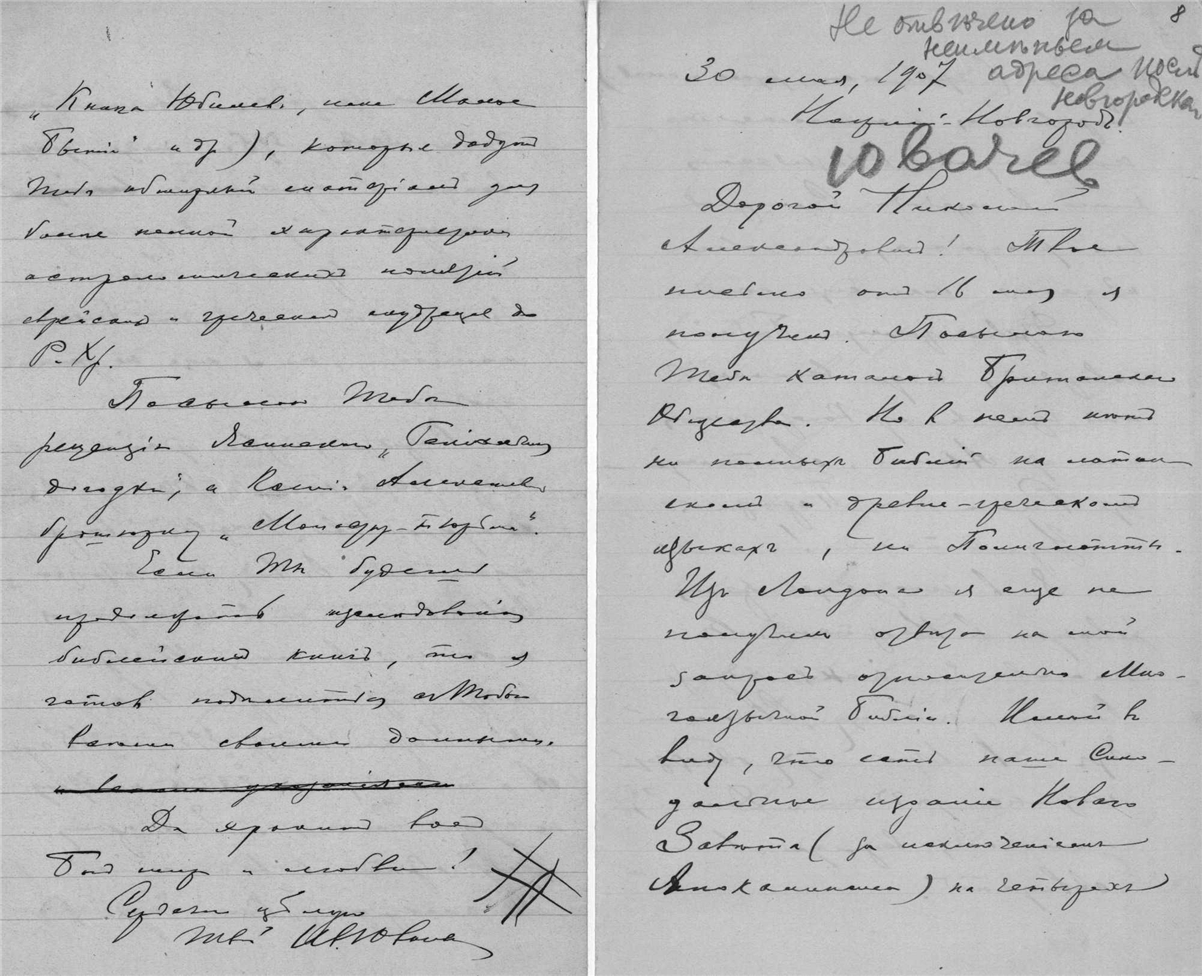 „Книга Юбилеевъ, или Малое
Бытiе" и др), которые дадутъ
Тебѣ обширный матерiалъ для
болѣе полной характеристики
астрономическихъ понятiй
еврейских и греческих мудрецовъ до
Р. Хр.
Посылаю Тебѣ
рецензiю
догадки", а Ксенiи Алексѣевнѣ
брошюрку
Если Ты будешь
продолжать изслѣдованiя
библейскихъ книгъ, то я
готовъ подѣлиться съ Тобою
всѣми своими данными.
Да хранитъ васъ
Богъ мира и любви!
Сердечно цѣлую
Твой Ив. Ювачев
8
Не отвѣчено за
неимѣньем
адреса послѣ
новгородскаго
30 мая, 1907
Нижнiй-Новгородъ.
Ювачев
Дорогой Николай
Александрович! Твое
письмо отъ 16 мая я
получилъ. Посылаю
Тебѣ каталогъ Британскаго
Общества. Но в немъ нѣтъ
ни полныхъ Библiй на латин-
скомъ и древне-греческомъ
языкахъ, ни Полиглотты.
Изъ Лондона я еще не
получилъ отвѣта на мой
запросъ относительно Мно-
гоязычной Библiи. Имѣй в
виду, что есть наше Сино-
дальное изданiе Новаго
Завѣта (за исключенiемъ
Апокалипсиса) на четырехъ